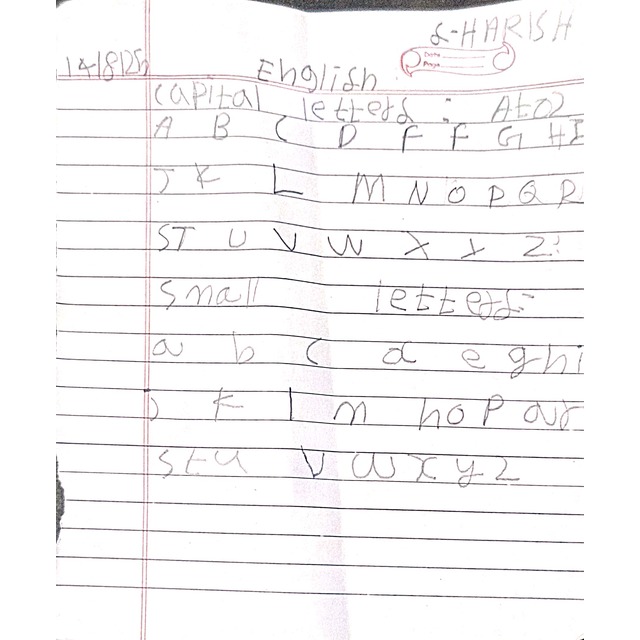 S-HARISH
14/8/25 English
capital letters : A to Z
A B C D F F G H I
J K L M N O P Q R
S T U V W X Y Z:
Small letters:-
a b c d e g h i
j k l m n o p q r
s t u v w x y z